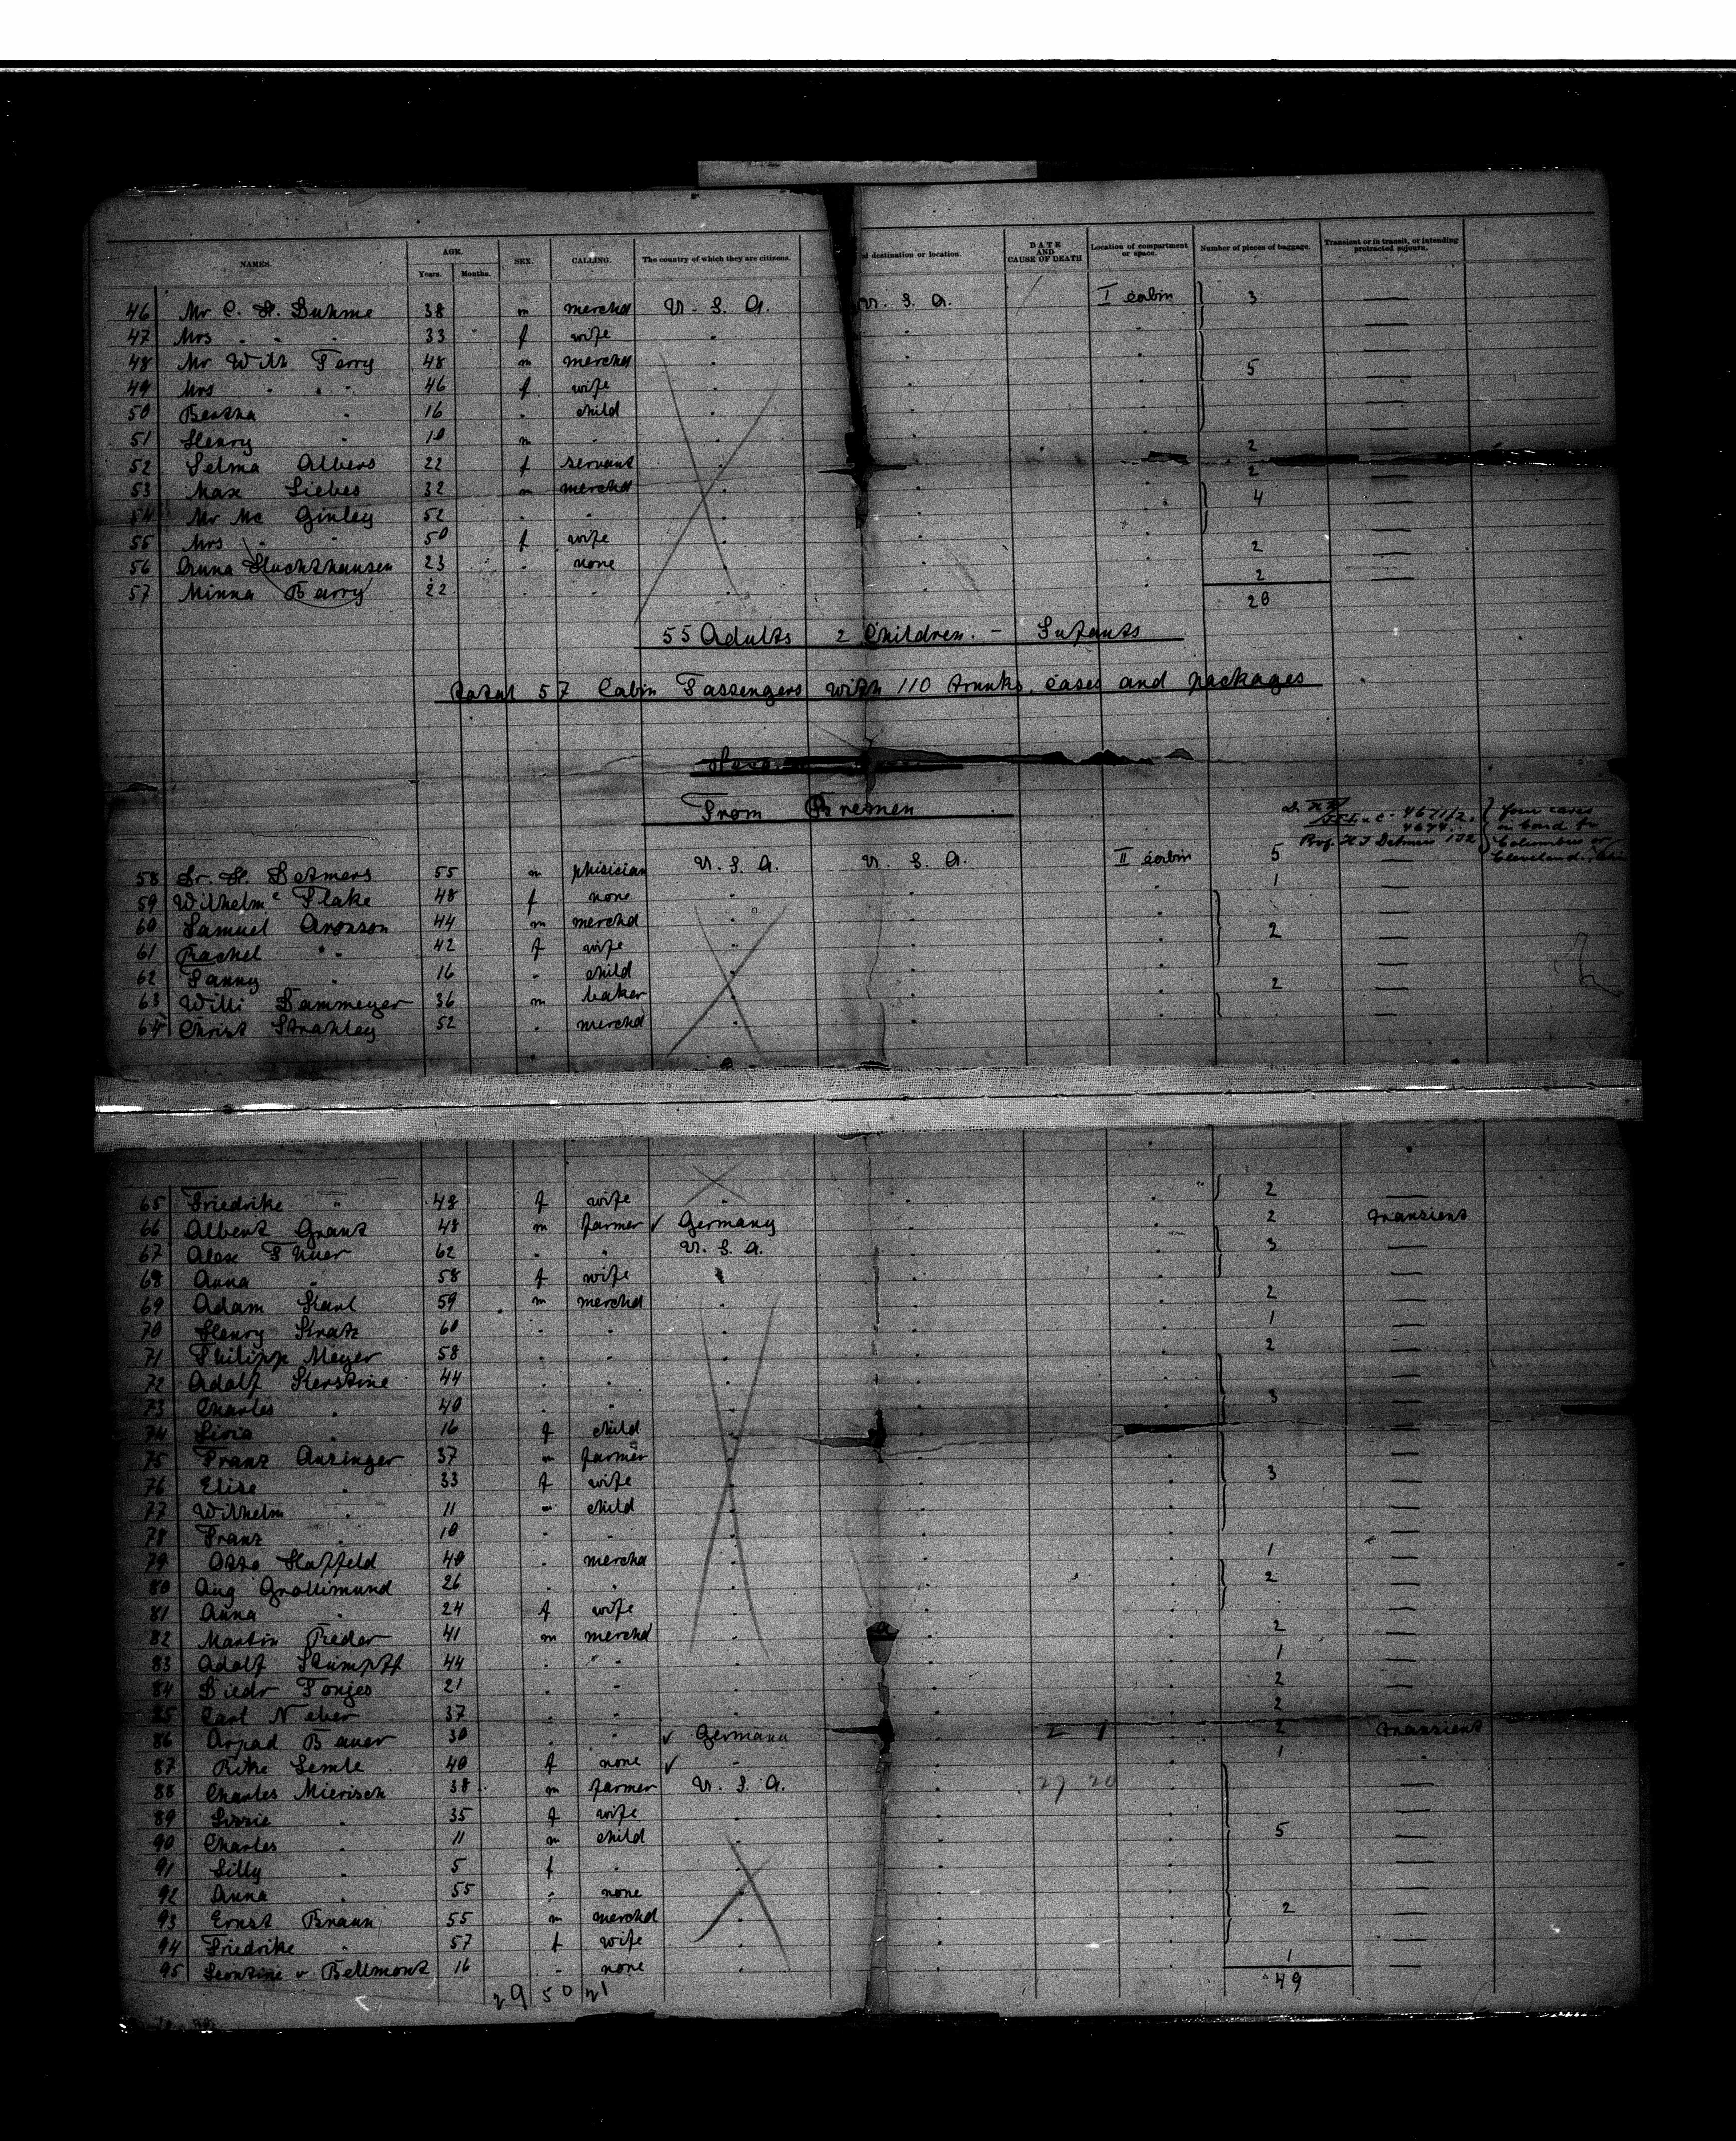 NAMES. AGE. Years. Months. SEX. CALLING. The country of which they are citizens. d destination or location. DATE AND CAUSE OF DEATH Location of compartment or space. Number of pieces of baggage. Transient or in transit, or intending protracted sojourn.
46 Mr C. H. Duhme 38 m merchd U. S. A. U. S. A. / I cabin 3 —
47 Mrs " " " 33 f wife " " " —
48 Mr Wilh Terry 48 m merchd " " " 5 —
49 Mrs " " " 46 f wife " " " —
50 Bertha " 16 " child " " " —
51 Henry " 10 m " " " " 2 —
52 Selma Albers 22 f servant " " 2 —
53 Max Liebes 32 m merchd " " " 4 —
54 Mr Mc Ginley 52 " " " " " —
55 Mrs " " 50 f wife " " " 2 —
56 Anna Huchthausen 23 " none " " " 2 —
57 Minna Barry 22 " " " " " 20
55 Adults 2 Children. - Infants
total 57 Cabin Passengers with 110 trunks, cases and packages
From Bremen
4671/2. } four cases
4674. on board to
Prof. H J Detmers 132 Columbus or
Cleveland,
58 Dr. H. Detmers 55 m phisician U. S. A. U. S. A. II cabin 5
59 Wilhelm e Flake 48 f none " " " 1 —
60 Samuel Aronson 44 m merchd " " " —
61 Rachel " " 42 f wife " " " 2 —
62 Fanny " 16 " child " " " —
63 Willi Dammeyer 36 m baker " " " 2 —
64 Christ Strahley 52 " merchd " " " —
65 Friedrike " 48 f wife " " " 2 —
66 Albert Grant 48 m farmer √ Germany " " 2 transient
67 Alex 62 " " U. S. A. " " 3 —
68 Anna " 58 f wife " " " —
69 Adam Karl 59 m merchd " " " 2 —
70 Henry Kratz 60 " " " " " 1 —
71 Philipp Meyer 58 " " " " " 2 —
72 Adolf Kerstine 44 " " " " " —
73 Charles " 40 " " " " " 3 —
74 Livia " 16 f child " " —
75 Franz Anzinger 37 m farmer " " " —
76 Elise " 33 f wife " " " 3 —
77 Wilhelm " 11 " child " " " —
78 Franz " 10 " " " " " —
79 Otto Hatfeld 40 " merchd " " " 1 —
80 Aug Grollimund 26 " " " " " 2 —
81 Anna " 24 f wife " " " —
82 Martin Rieder 41 m merchd " " " 2 —
83 Adolf Stumpff 44 " " " " " 1 —
84 Diedr Tonjes 21 " " " " " 2 —
85 Carl Neber 37 " " " " " 2 —
86 Arpad Bauer 30 " " √ Germany " 2 1 " 2 transient
87 Rike Semle 40 f none √ " " " 1 "
88 Charles Mierisch 38 m farmer U. S. A. " 27 20 " —
89 Lizzie " 35 f wife " " " —
90 Charles " 11 m child " " " 5 —
91 Lilly " 5 f " " " " —
92 Anna " 55 " none " " " —
93 Ernst Braun 55 m merchd " " " 2 —
94 Friedrike " 57 f wife " " " —
95 Leontine v Bellmont 16 " none " " " 1 —
49
29 50 21